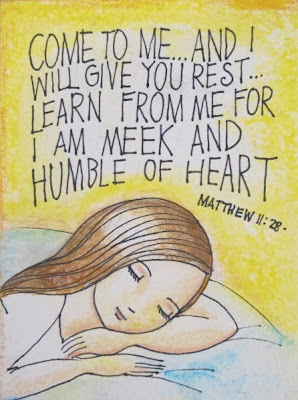 COME TO ME...AND I
WILL GIVE YOU REST...
LEARN FROM ME FOR
I AM MEEK AND
HUMBLE OF HEART
MATTHEW 11:28-